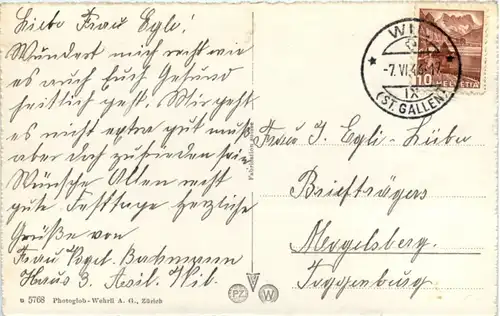 Liebe Frau Egli!
Wundert mich recht wie
es auch Euch Gesund
heitlich geht. Mir geht
es nicht extra gut muß
aber doch zufrieden sein
Wünsche Allen recht
gute Festtage herzliche
Grüße von
Frau Vogel-Bachmann
Haus 3. Asil. Wil.
u 5768 Photoglob-Wehrli A. G., Zürich
PZ W
WIL
-7.VI.
IX
(ST. GALLEN)
10 HELVETIA
Frau J. Egli-
Briefträgers
Mogelsberg.
Toggenburg